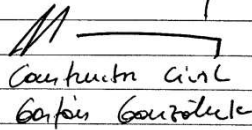 Constructor Civil
Gastón González